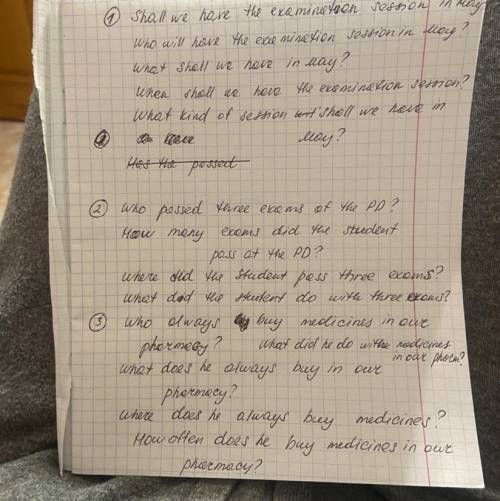 ① Shall we have the examination session in May
Who will have the examination session in May?
What shall we have in May?
When shall we have the examination session?
What kind of session shall we have in
May?
Has the passed
② Who passed three exams at the PD?
How many exams did the student
pass at the PD?
Where did the student pass three exams?
What did the student do with three exams?
③ Who always buy medicines in our
pharmacy? What did he do with medicines
in our pharm?
What does he always buy in our
pharmacy?
Where does he always buy medicines?
How often does he buy medicines in our
pharmacy?